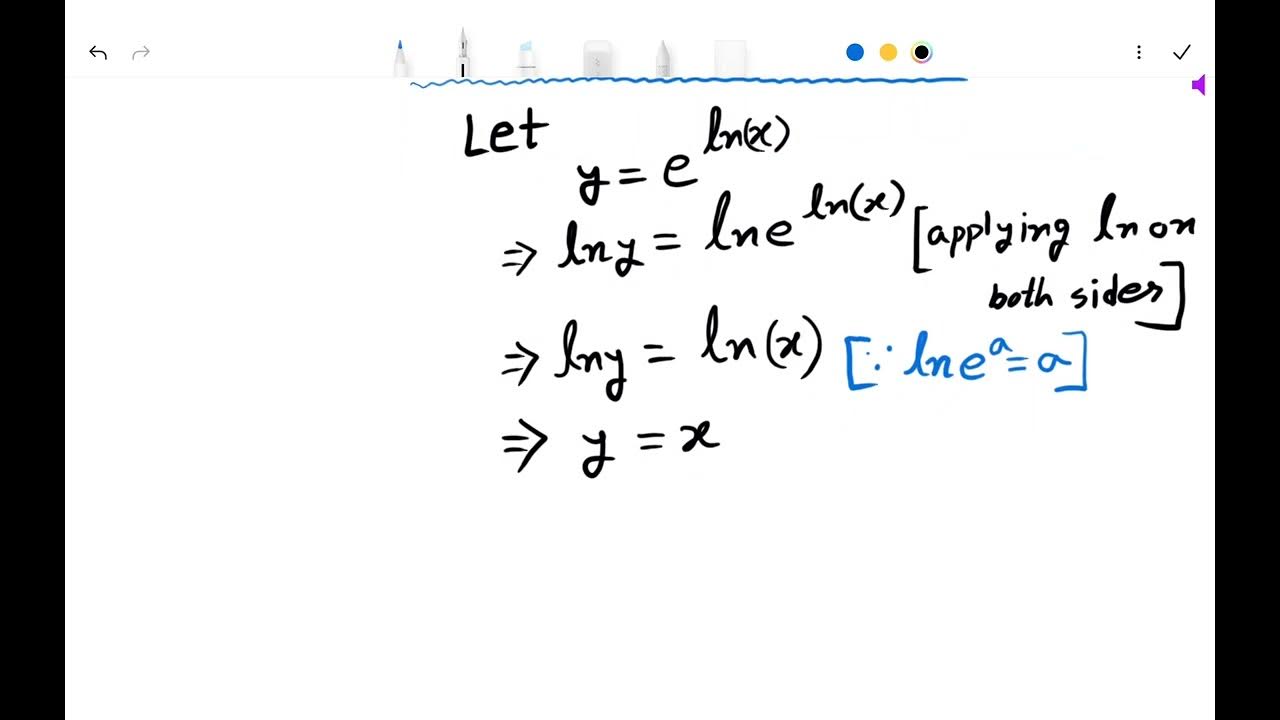 Let
y = e^ln(x)
⇒ ln y = ln e^ln(x) [applying ln on
both sides]
⇒ ln y = ln(x) [∵ ln e^a = a]
⇒ y = x